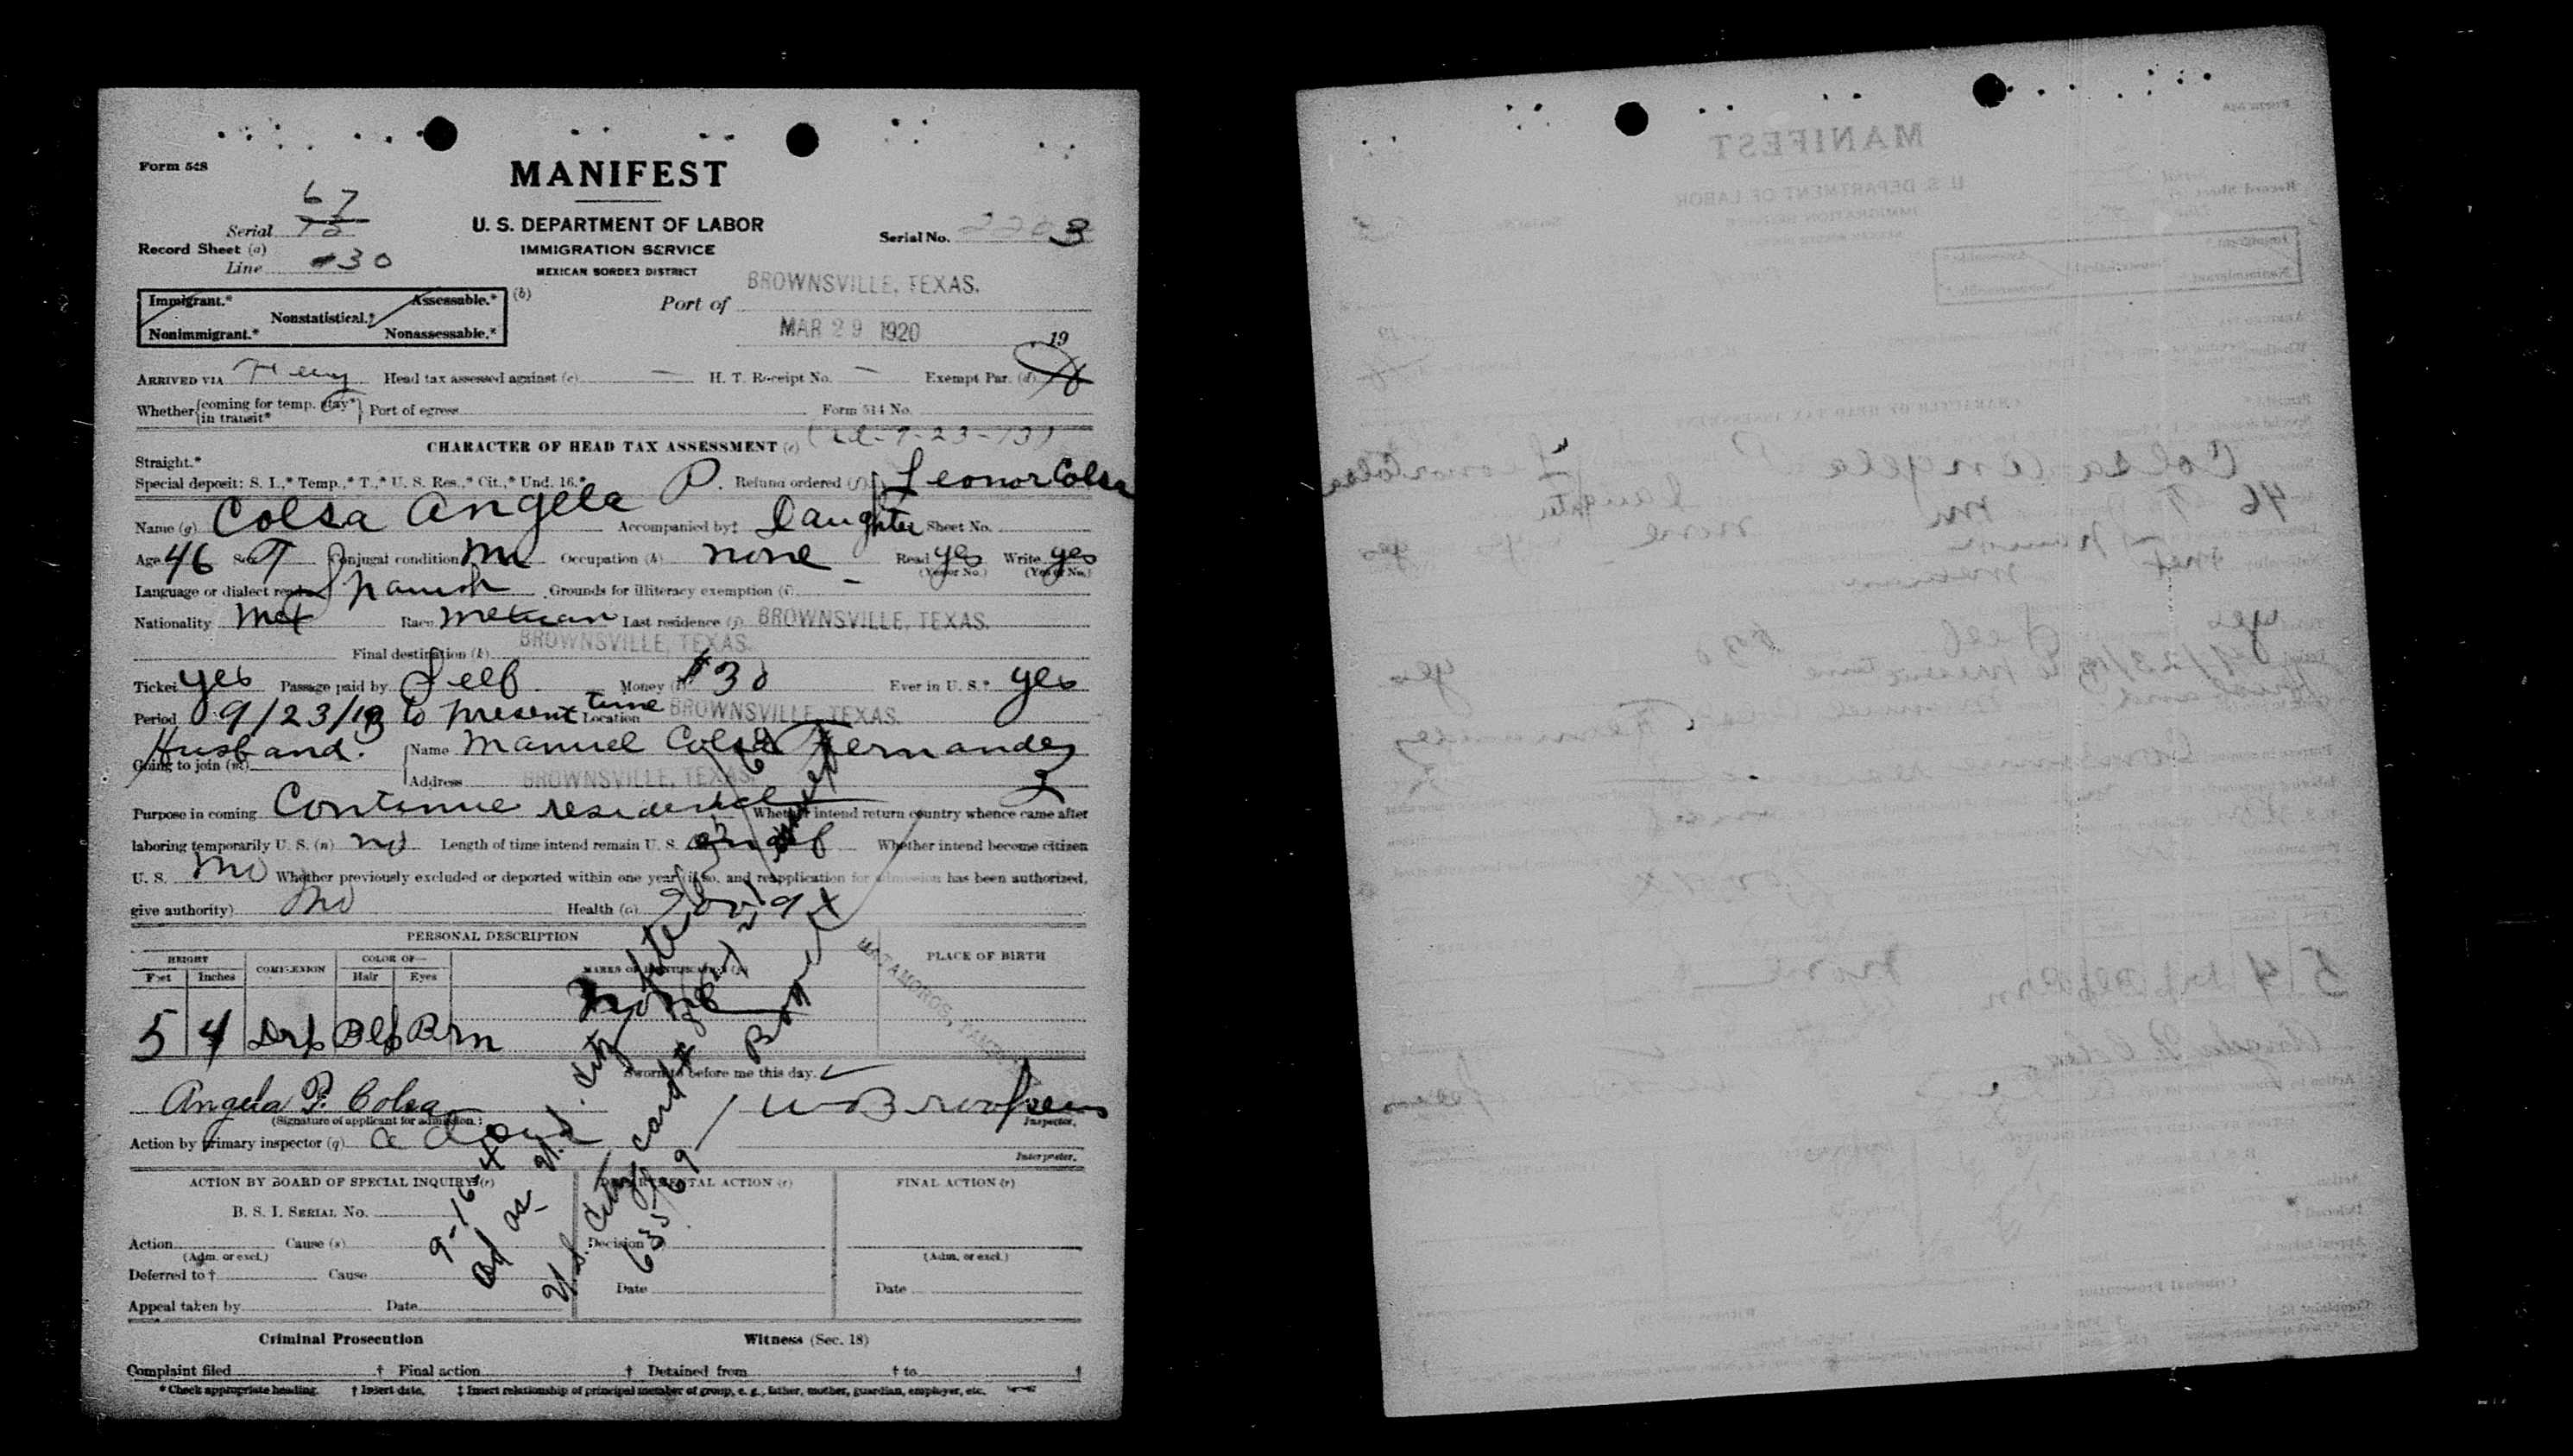 Form 548
MANIFEST
67
Serial 72
U. S. DEPARTMENT OF LABOR
Serial No. 2203
Record Sheet (a)
IMMIGRATION SERVICE
Line 30
MEXICAN BORDER DISTRICT
BROWNSVILLE, TEXAS.
Immigrant.* Assessable.* (b)
Port of
Nonstatistical.*
Nonimmigrant.* Nonassessable.*
MAR 29 1920 19
ARRIVED VIA Ferry Head tax assessed against (c) — H. T. Receipt No. — Exempt Par. (d)
Whether {coming for temp. stay* in transit*} Port of egress Form 514 No.
CHARACTER OF HEAD TAX ASSESSMENT (e)
Straight.*
Special deposit: S. I.,* Temp.,* T.,* U. S. Res.,* Cit.,* Und. 16.* Refund ordered (f) Leonor Colsa
Name (g) Colsa Angela P. Accompanied by‡ Daughter Sheet No.
Age 46 Sex F Conjugal condition M Occupation (h) none Read yes Write yes
(Yes or No.) (Yes or No.)
Language or dialect read Spanish Grounds for illiteracy exemption (i) —
Nationality Mex Race Mexican Last residence (j) BROWNSVILLE, TEXAS.
Final destination (k) BROWNSVILLE, TEXAS.
Ticket yes Passage paid by Self Money (l) $30 Ever in U. S.* yes
Period 9/23/13 to present time Location BROWNSVILLE, TEXAS.
Husband. Name Manuel Colsa Fernandez
Going to join (m)
Address BROWNSVILLE, TEXAS.
Purpose in coming Continue residence Whether intend return country whence came after
laboring temporarily U. S. (n) no Length of time intend remain U. S. indef Whether intend become citizen
U. S. no Whether previously excluded or deported within one year (if so, and reapplication for admission has been authorized,
give authority) no Health (o)
PERSONAL DESCRIPTION
HEIGHT COMPLEXION COLOR OF— MARKS OF IDENTIFICATION (p) PLACE OF BIRTH
Feet Inches Hair Eyes
5 4 Drk Blk Brn none
MATAMOROS,
Sworn to before me this day.
Angela P. Colsa
(Signature of applicant for admission.) Inspector.
Action by primary inspector (q)
Interpreter.
ACTION BY BOARD OF SPECIAL INQUIRY (r) DEPARTMENTAL ACTION (r) FINAL ACTION (r)
B. S. I. SERIAL No.
Action Cause (s) Decision
(Adm. or excl.) (Adm. or excl.)
Deferred to † Cause
Date Date
Appeal taken by Date
U.S. Citz card #
Criminal Prosecution Witness (Sec. 18)
Complaint filed † Final action † Detained from † to †
* Check appropriate heading. † Insert date. ‡ Insert relationship of principal member of group, e. g., father, mother, guardian, employer, etc.